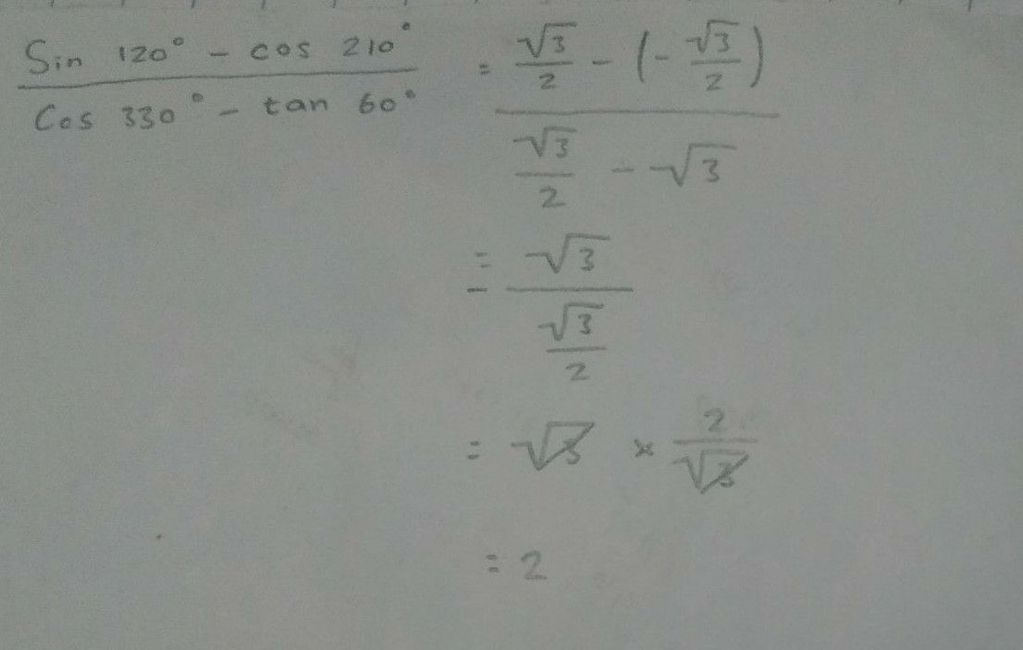 Sin 120° - cos 210° / Cos 330° - tan 60° = √3/2 - (-√3/2) / √3/2 - √3
= √3 / √3/2
= √3 × 2/√3
= 2